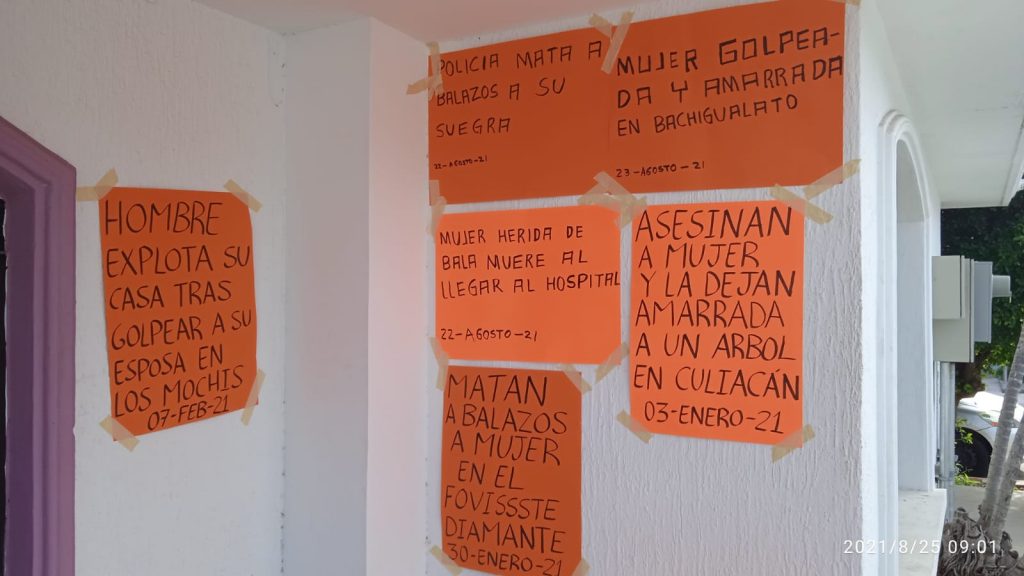 HOMBRE
EXPLOTA SU
CASA TRAS
GOLPEAR A SU
ESPOSA EN
LOS MOCHIS
07-FEB-21
POLICIA MATA A
BALAZOS A SU
SUEGRA
22-AGOSTO-21
MUJER GOLPEA-
DA Y AMARRADA
EN BACHIGUALATO
23-AGOSTO-21
MUJER HERIDA DE
BALA MUERE AL
LLEGAR AL HOSPITAL
22-AGOSTO-21
ASESINAN
A MUJER
Y LA DEJAN
AMARRADA
A UN ARBOL
EN CULIACÁN
03-ENERO-21
MATAN
A BALAZOS
A MUJER
EN EL
FOVISSSTE
DIAMANTE
30-ENERO-21
2021/8/25 09:01